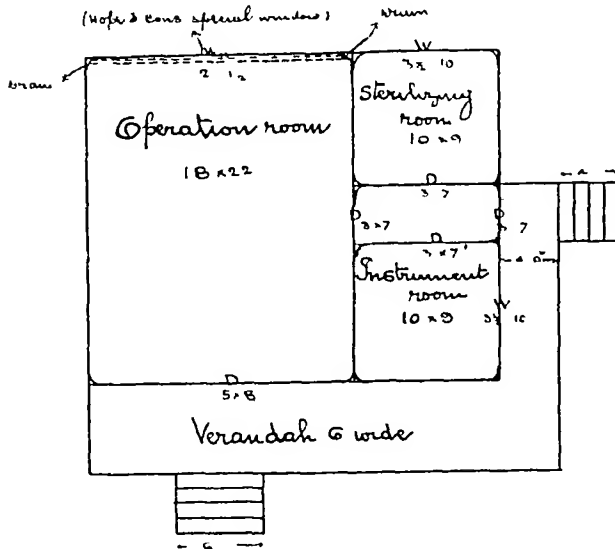 (Hope & cons special window)
drain
drain
W
2 12
W
3½ 10
Operation room
18 × 22
Sterilizing
room
10 × 9
D
3 7
D
3 × 7
D
3 7
D
3 × 7'
Instrument
room
10 × 9
W
3½ 10
D
5 × 8
Verandah 6 wide
6